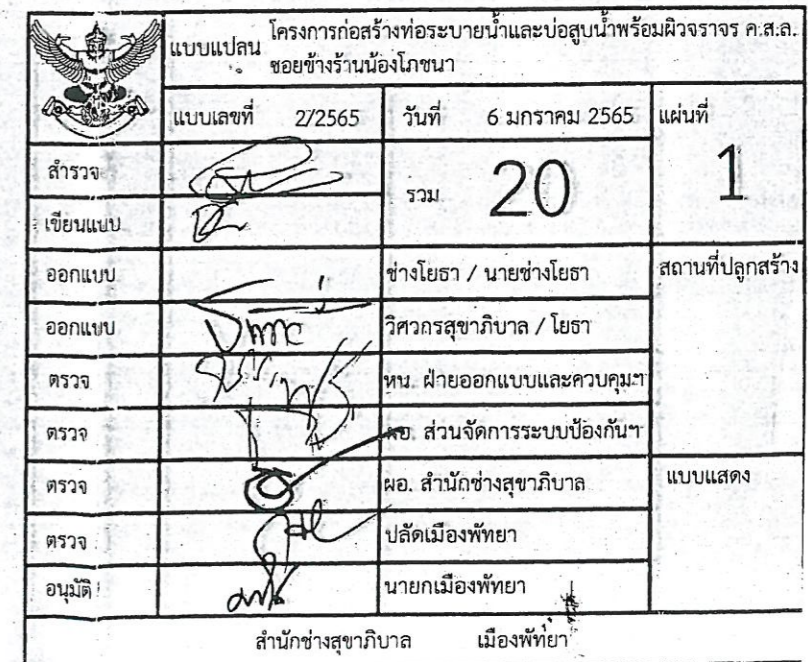 แบบแปลน โครงการก่อสร้างท่อระบายน้ำและบ่อสูบน้ำพร้อมผิวจราจร ค.ส.ล.
ซอยข้างร้านน้องโภชนา
แบบเลขที่ 2/2565 วันที่ 6 มกราคม 2565 แผ่นที่
สำรวจ รวม 20 1
เขียนแบบ
ออกแบบ ช่างโยธา / นายช่างโยธา สถานที่ปลูกสร้าง
ออกแบบ วิศวกรสุขาภิบาล / โยธา
ตรวจ หน. ฝ่ายออกแบบและควบคุมฯ
ตรวจ ส่วนจัดการระบบป้องกันฯ
ตรวจ ผอ. สำนักช่างสุขาภิบาล แบบแสดง
ตรวจ ปลัดเมืองพัทยา
อนุมัติ นายกเมืองพัทยา
สำนักช่างสุขาภิบาล เมืองพัทยา